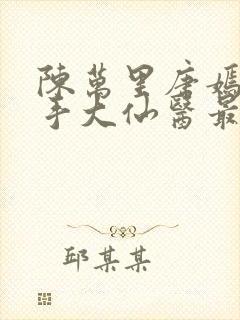 陳萬里唐嫣
手大仙醫最
邱某某